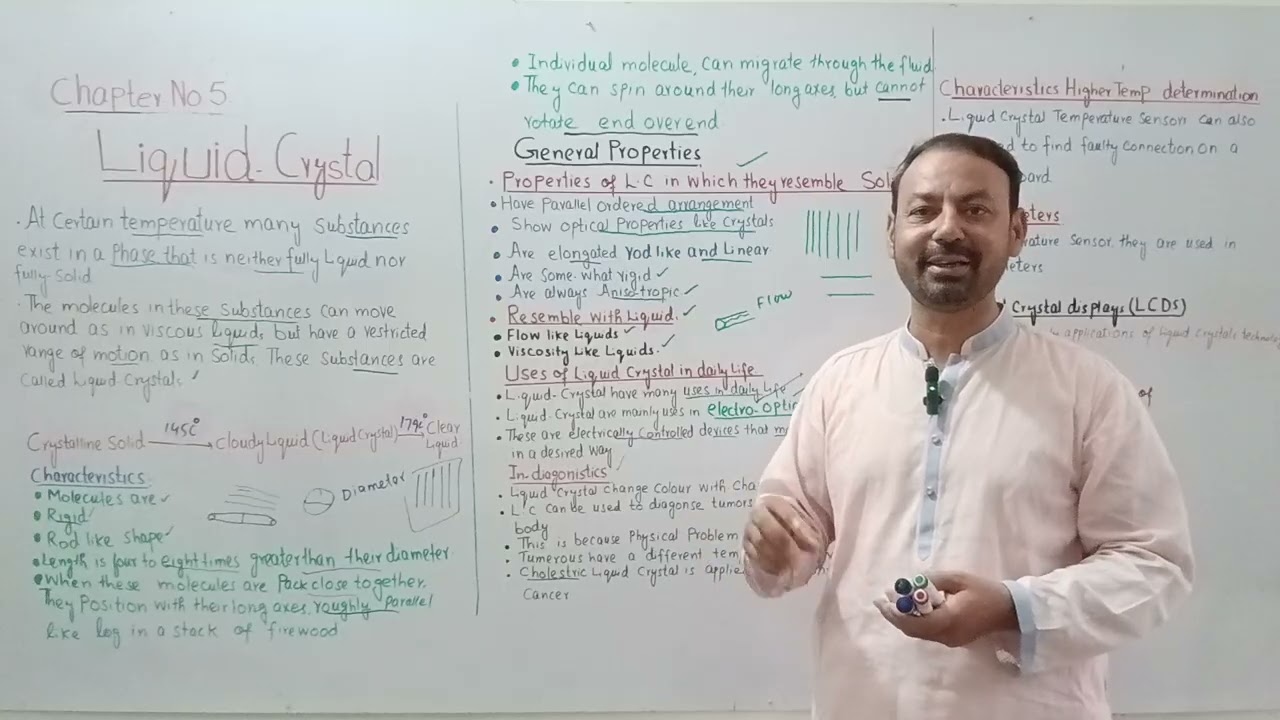 Chapter No 5
Liquid-Crystal
• At Certain temperature many Substances
exist in a Phase that is neither fully Liquid nor
fully Solid
• The molecules in these substances can move
around as in viscous liquid, but have a restricted
range of motion as in Solids These Substances are
Called Liquid Crystals
Crystalline Solid 145c° Cloudy Liquid (Liquid Crystal) 179c° Clear
Liquid
Characteristics
• Molecules are
• Rigid
• Rod like Shape
Diameter
• Length is four to eight times greater than their diameter
• When these molecules are Pack close together.
They Position with their long axes, roughly Parallel
like log in a stack of firewood
• Individual molecule, can migrate through the fluid
• They can spin around their long axes, but cannot
rotate end over end
General Properties
• Properties of L.C in which they resemble
• Have Parallel ordered arrangement
• Show optical Properties like Crystals
• Are elongated rod like and Linear
• Are Some what rigid
• Are always Anisotropic
Flow
• Resemble with Liquid.
• Flow like Liquids
• Viscosity Like Liquids.
Uses of Liquid Crystal in daily Life
• Liquid-Crystal have many uses in daily Life
• Liquid Crystal are mainly uses in electro-optic
• These are electrically Controlled devices that
in a desired way
In-diagonistics
• Liquid Crystal change Colour with
• L.C can be used to diagonse tumors
body
• This is because Physical Problem
• Tumerous have a different
• Cholestric Liquid Crystal is
Cancer
Characteristics Higher Temp determination
• Liquid Crystal Temperature Sensors Can also
to find faulty connection on a
Sensor. they are used in
Crystal displays (LCDS)
in applications of Liquid Crystals
of